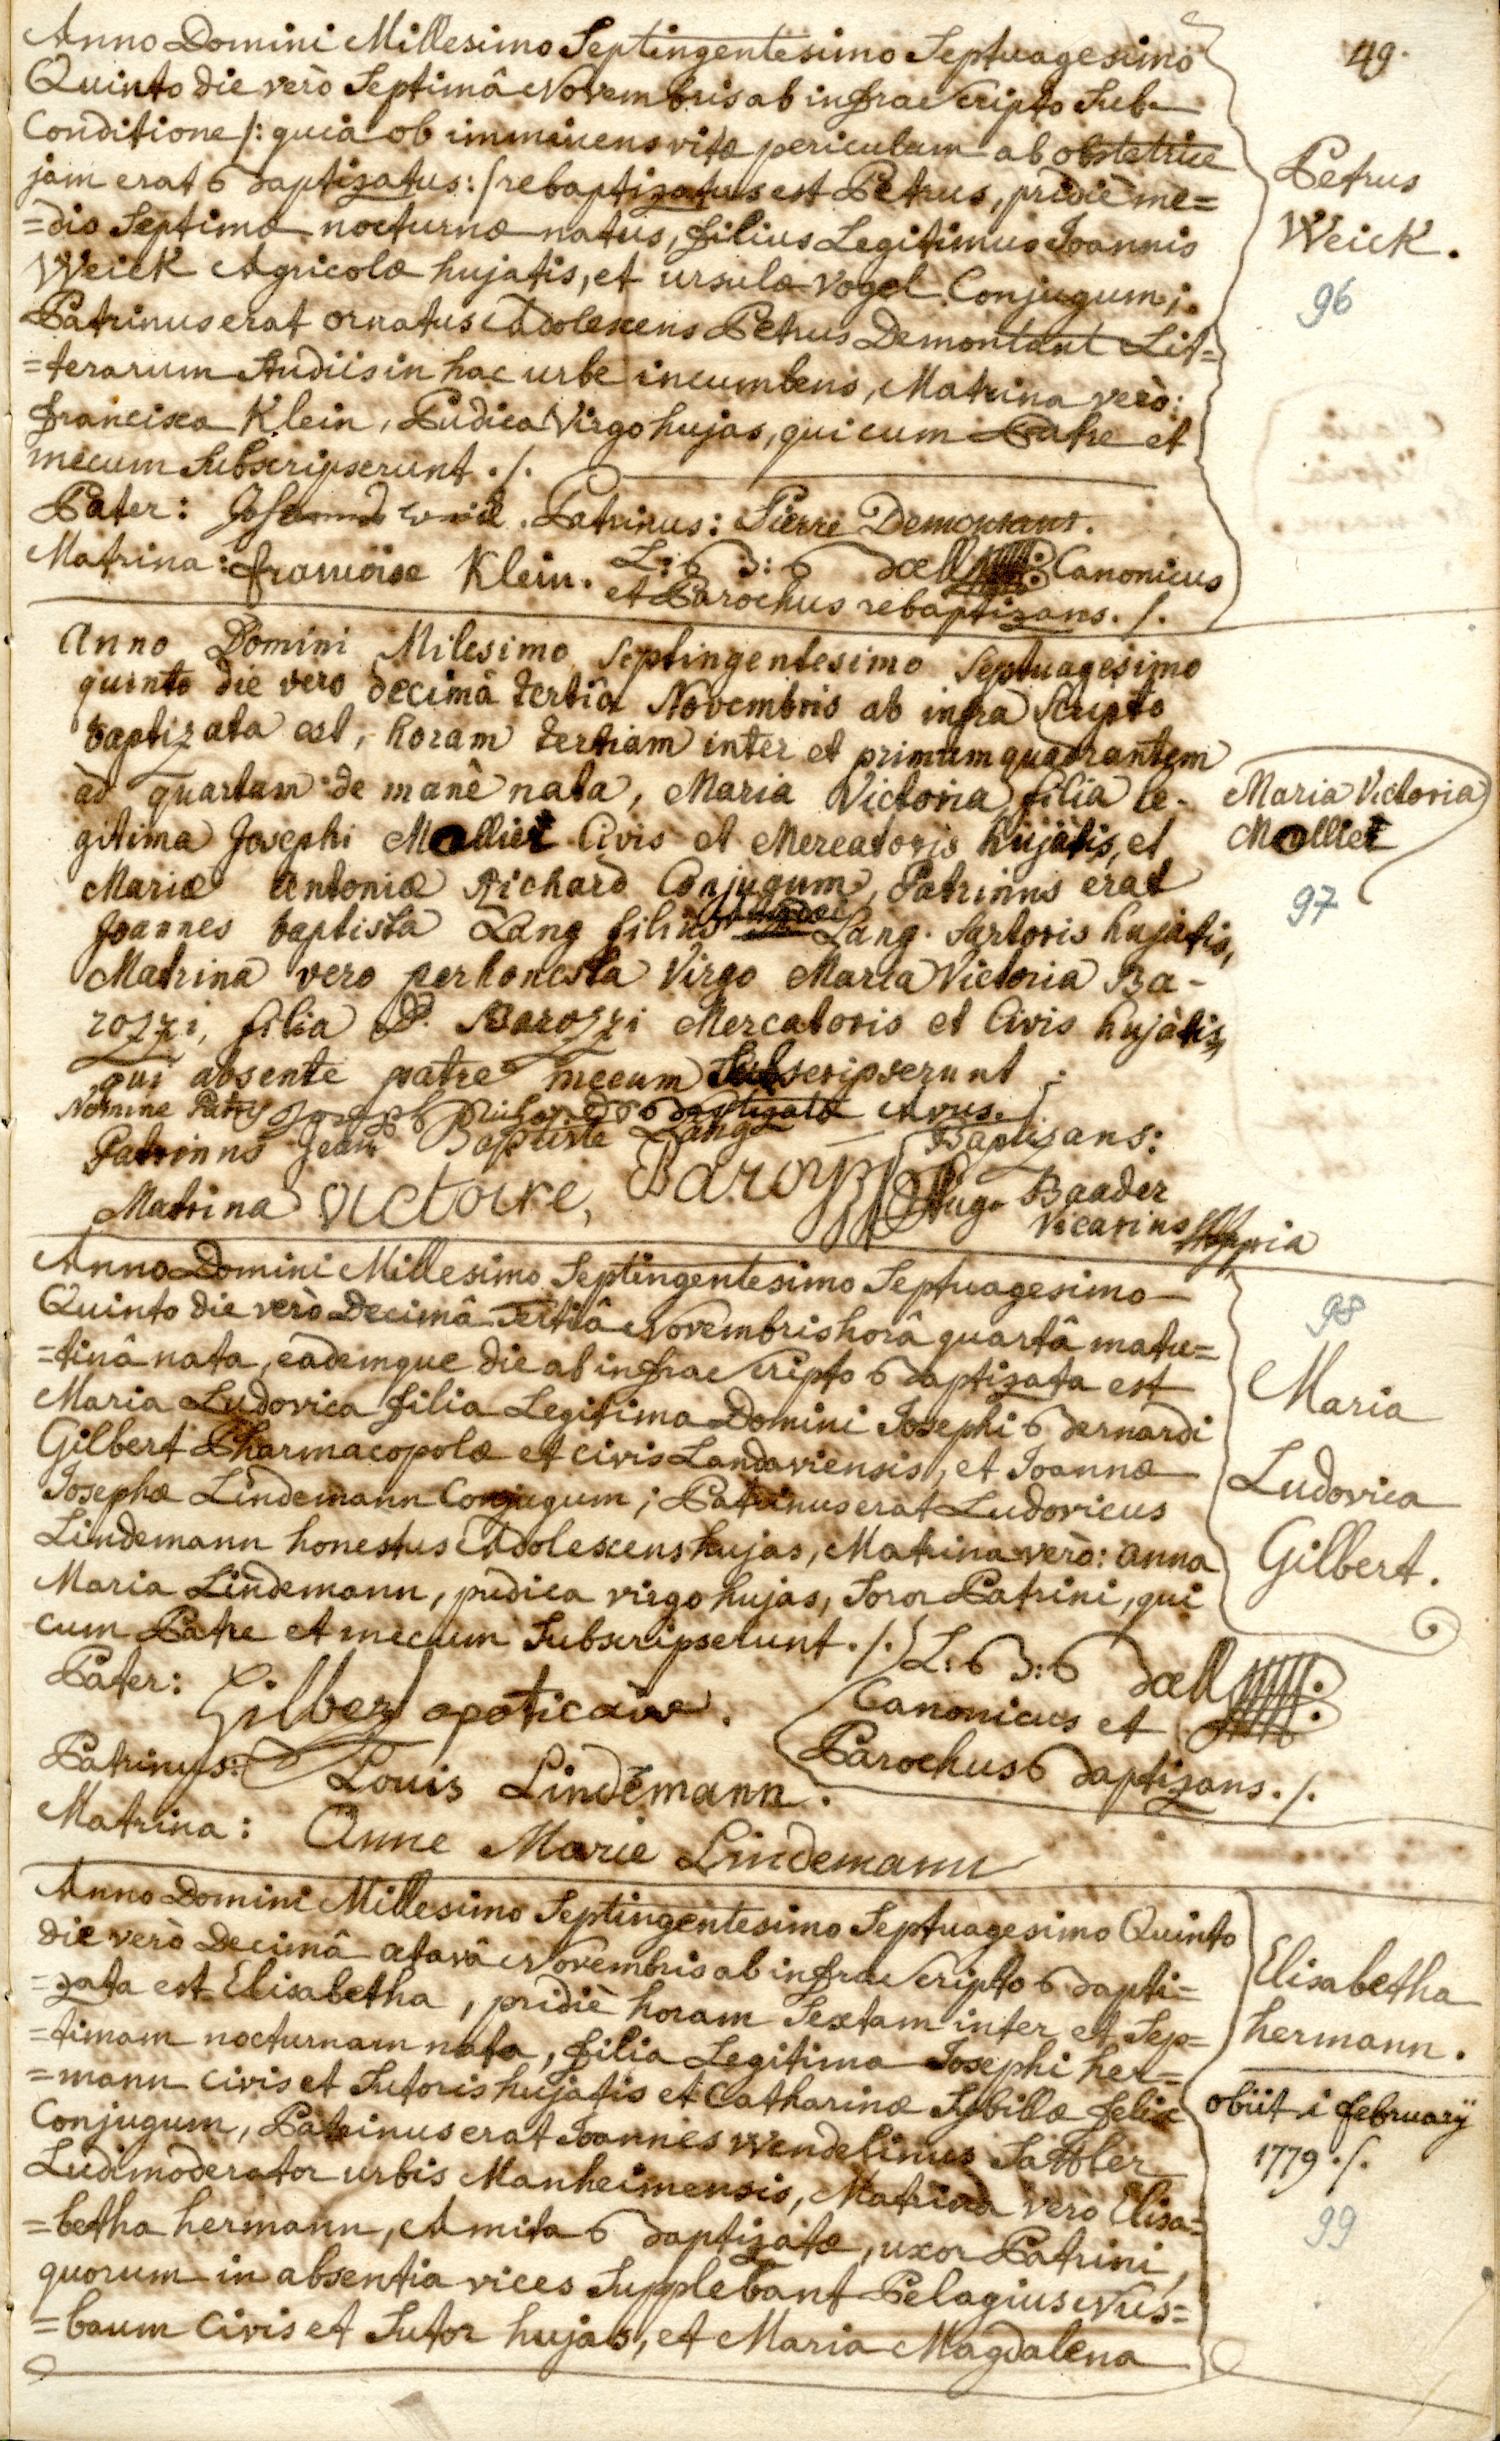 49.
Anno Domini Millesimo Septingentesimo Septuagesimo
Quinto die verò Septimâ Novembris ab infra Scripto Sub
Conditione /: quia ob imminens vitæ periculum ab obstetrice
jam erat baptizatus: / rebaptizatus est Petrus, pridiè me=
=dio Septimæ nocturnæ natus, filius Legitimus Joannis
Weick Agricolæ hujatis, et ursulæ Vogel Conjugum;
Patrinus erat ornatus Adolescens Petrus Demontant Lit=
=terarum Studiis in hac urbe incumbens, Matrina verò:
francisca Klein, Pudica Virgo hujas, qui cum Patre et
mecum Subscripserunt ./.
Pater: Patrinus: Pierre Demontant.
Matrina: françoise Klein. L: B: Böll Canonicus
et Parochus rebaptizans ./.
Petrus
Weick.
96
Anno Domini Milesimo Septingentesimo Septuagesimo
quinto die vero decimâ tertiâ Novembris ab infra Scripto
baptizata est, horam tertiam inter et primum quadrantem
ad quartam de manè nata, Maria Victoria filia le-
gitima Josephi Molliet Civis et Mercatoris hujàtis, et
Mariæ Antoniæ Richard Conjugum, Patrinus erat
Joannes baptista Lang filius Lang Sartoris hujàtis,
Matrina vero perhonesta Virgo Maria Victoria Ba-
rozzi, filia D. Barozzi Mercatoris et Civis hujàtis,
qui absente patre mecum Subscripserunt :
Nomine Patris Joseph Richard baptizatæ Avus ./.
Patrinus Jean Baptiste Lang Baptizans:
Matrina Victoire, Barozzi Hugo Baader
Vicarius
Maria Victoria
Molliet
97
Anno Domini Millesimo Septingentesimo Septuagesimo
Quinto die verò Decimâ Tertiâ Novembris horâ quartâ matu=
=tinâ nata, eademque die ab infra Scripto baptizata est
Maria Ludovica filia Legitima Domini Josephi Bernardi
Gilbert Pharmacopolæ et civis Landaviensis, et Joannæ
Josephæ Lindemann Conjugum; Patrinus erat Ludovicus
Lindemann honestus Adolescens hujas, Matrina verò: Anna
Maria Lindemann, pudica virgo hujas, Soror Patrini, qui
cum Patre et mecum Subscripserunt ./. L: B: Böll
Pater: Gilbert apoticaire. Canonicus et
Patrinus: Louis Lindemann. Parochus baptizans ./.
Matrina: Anne Marie Lindemann
98
Maria
Ludovica
Gilbert.
Anno Domini Millesimo Septingentesimo Septuagesimo Quinto
die verò Decimâ octavâ Novembris ab infra Scripto bapti=
=zata est Elisabetha, pridiè horam Sextam inter et Sep=
=timam nocturnam nata, filia Legitima Josephi her=
=mann civis et Sutoris hujatis et Catharinæ Sybillæ felix
Conjugum, Patrinus erat Joannes Wendelinus Sattler
Ludimoderator urbis Manheimensis, Matrina verò Elisa=
=betha hermann, Amita baptizatæ, uxor Patrini,
quorum in absentia vices Supplebant Pelagius Nus=
=baum Civis et Sutor hujas, et Maria Magdalena
Elisabetha
hermann.
obiit 1 february
1779 ./.
99